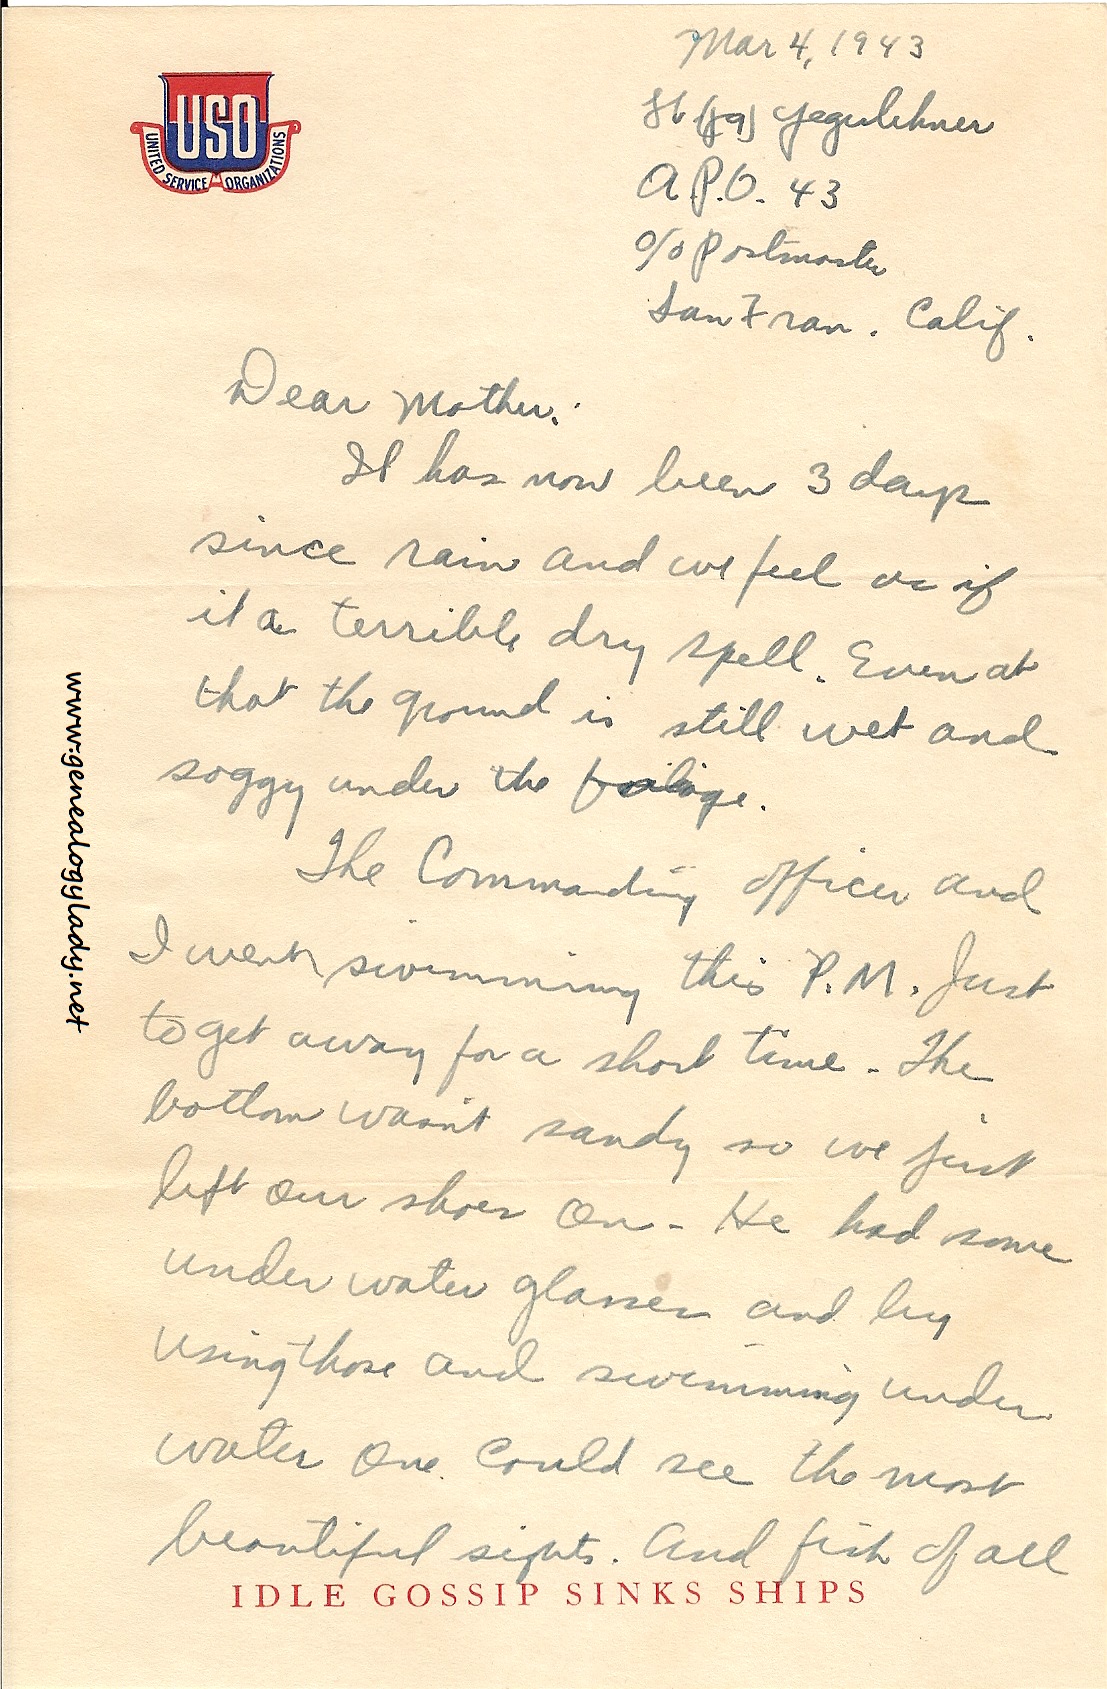 Mar 4, 1943
USO
UNITED SERVICE ORGANIZATIONS
Lt (jg) Yegerlehner
A.P.O. 43
c/o Postmaster
San Fran. Calif.
Dear Mother:
It has now been 3 days
since rain and we feel as if
it a terrible dry spell. Even at
that the ground is still wet and
soggy under the foilage.
The Commanding officer and
I went swimming this P.M. Just
to get away for a short time. The
bottom wasn't sandy so we just
left our shoes on. He had some
under water glasses and by
using those and swimming under
water one could see the most
beautiful sights. And fish of all
IDLE GOSSIP SINKS SHIPS
www.genealogylady.net